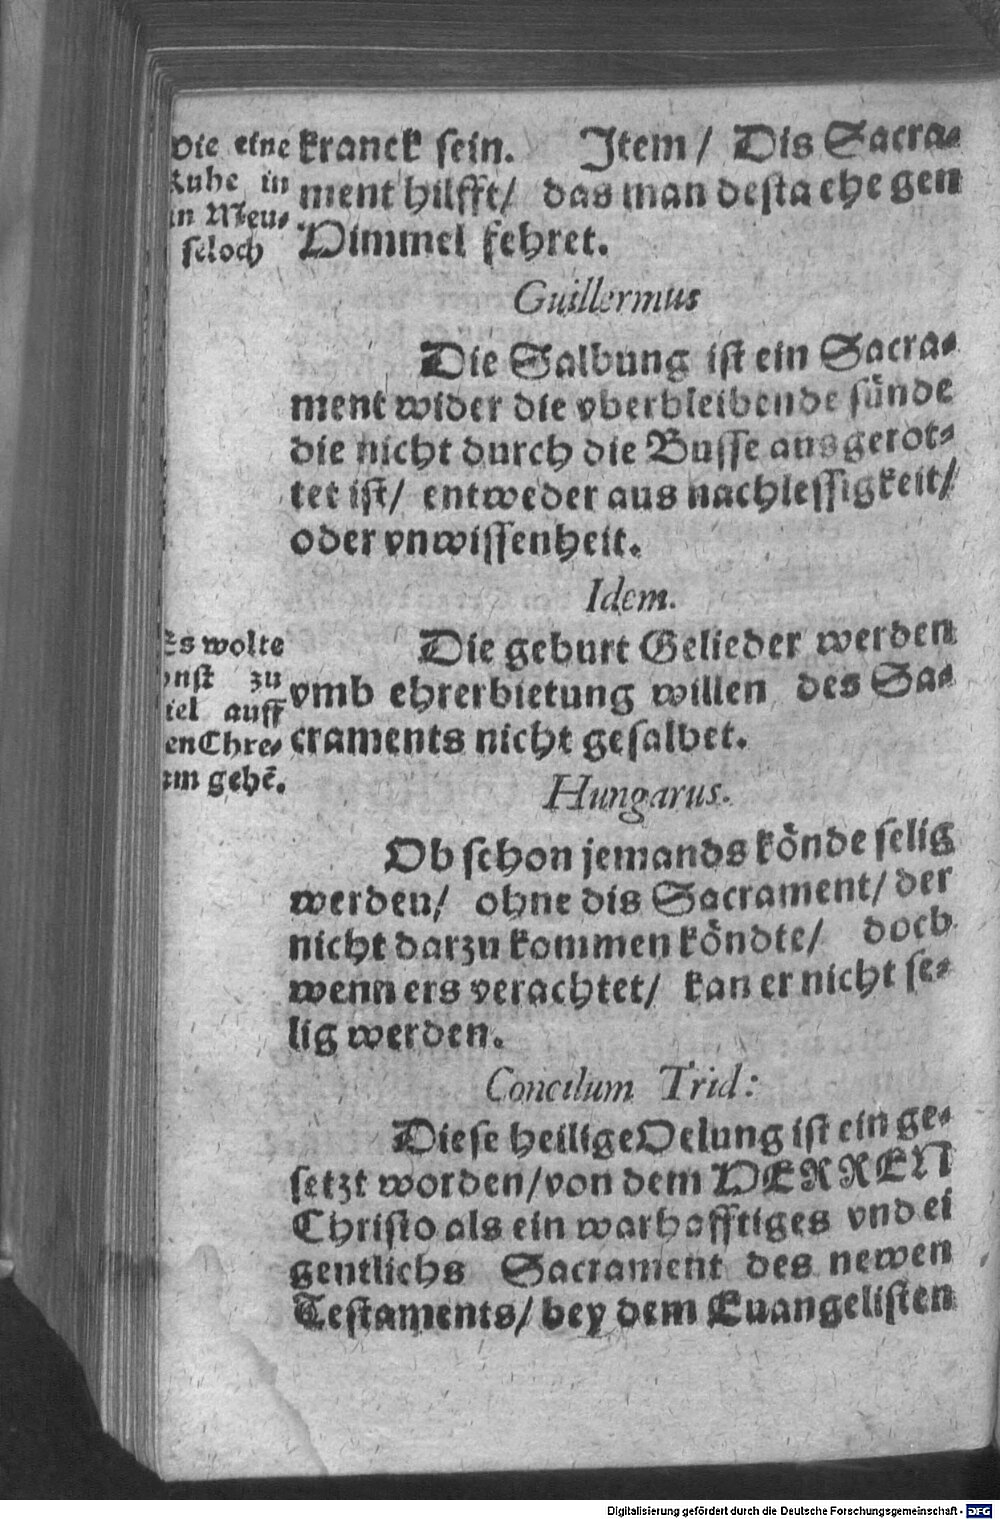 kranck sein. Jtem/ Dis Sacra-
ment hilfft/ das man desta ehe gen
Himmel fehret.
Wie eine
Kuhe in
ein Meu-
seloch
Guillermus
Die Salbung ist ein Sacra-
ment wider die vberbleibende sünde
die nicht durch die Busse ausgerot-
tet ist/ entweder aus nachlessigkeit/
oder vnwissenheit.
Idem.
Die geburt Gelieder werden
vmb ehrerbietung willen des Sa-
craments nicht gesalbet.
Es wolte
sonst zu
viel auff
den Chre-
sam gehē.
Hungarus.
Ob schon jemands könde selig
werden/ ohne dis Sacrament/ der
nicht darzu kommen köndte/ doch
wenn ers verachtet/ kan er nicht se-
lig werden.
Concilum Trid:
Diese heilige Oelung ist ein ge-
setzt worden/ von dem HERREN
Christo als ein warhafftiges vnd ei
gentlichs Sacrament des newen
Testaments/ bey dem Euangelisten
Digitalisierung gefördert durch die Deutsche Forschungsgemeinschaft - DFG